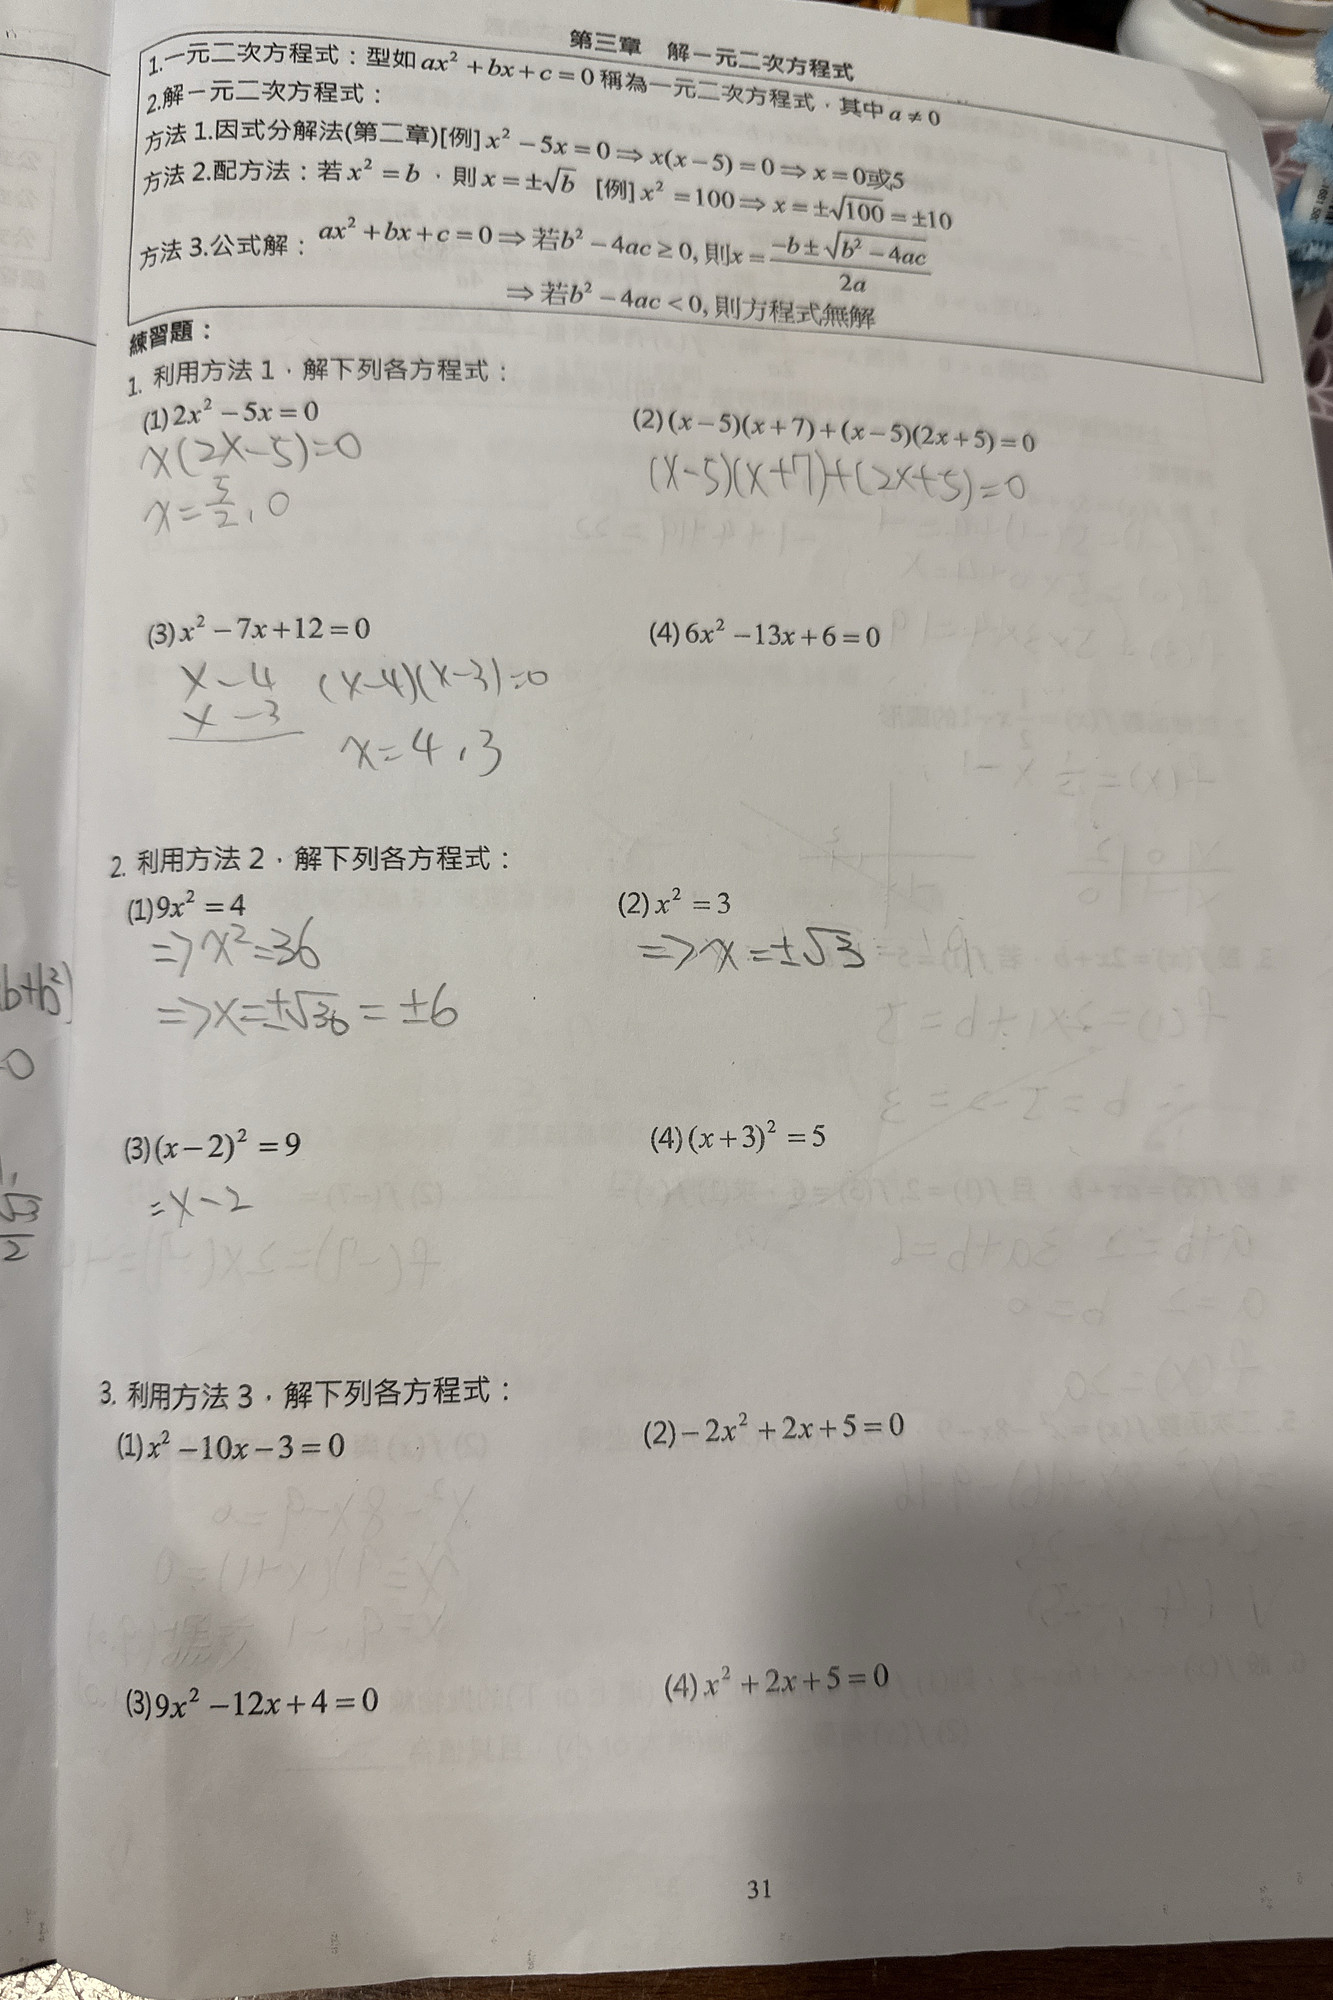 第三章 解一元二次方程式
1.一元二次方程式：型如 ax² + bx + c = 0 稱為一元二次方程式，其中 a ≠ 0
2.解一元二次方程式：
方法 1.因式分解法(第二章)[例] x² − 5x = 0 ⇒ x(x − 5) = 0 ⇒ x = 0或5
方法 2.配方法：若 x² = b ，則 x = ±√b [例] x² = 100 ⇒ x = ±√100 = ±10
方法 3.公式解： ax² + bx + c = 0 ⇒ 若b² − 4ac ≥ 0, 則x = (−b ± √(b² − 4ac)) / 2a
⇒ 若b² − 4ac < 0, 則方程式無解
練習題：
1. 利用方法 1，解下列各方程式：
(1) 2x² − 5x = 0
x(2x−5)=0
x = 5/2 , 0
(2) (x − 5)(x + 7) + (x − 5)(2x + 5) = 0
(x−5)(x+7)+(2x+5)=0
(3) x² − 7x + 12 = 0
x −4 (x−4)(x−3)=0
x −3
x = 4 , 3
(4) 6x² − 13x + 6 = 0
2. 利用方法 2，解下列各方程式：
(1) 9x² = 4
=> x² = 36
=> x = ±√36 = ±6
(2) x² = 3
=> x = ±√3
(3) (x − 2)² = 9
= x − 2
(4) (x + 3)² = 5
3. 利用方法 3，解下列各方程式：
(1) x² − 10x − 3 = 0
(2) − 2x² + 2x + 5 = 0
(3) 9x² − 12x + 4 = 0
(4) x² + 2x + 5 = 0
31